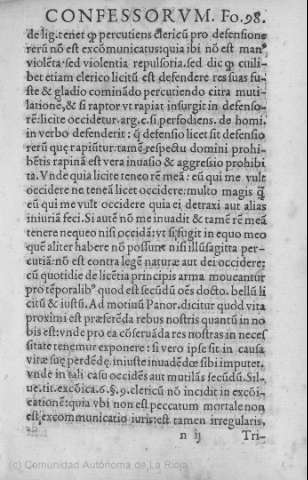 CONFESSORVM. Fo. 98.
de lig. tenet ꝙ percutiens clericũ pro defensione
rerũ nõ est excõmunicatus: quia ibi nõ est man⁹
violẽta sed violentia repulsoria. sed dic ꝙ cuili-
bet etiam clerico licitũ est defendere res suas su-
ste & gladio cominãdo percutiendo citra muti-
lationẽ, & si raptor vt rapiat insurgit in defenso-
rẽ: licite occidetur. arg. c. si perfodiens. de homi.
in verbo defenderit: q̃ defensio licet sit defensio
rerũ quę rapiũtur. tamẽ respectu domini prohi-
bẽtis rapinã est vera inuasio & aggressio prohibi
ta. Vnde quia licite teneo rẽ meã: eũ qui me vult
occidere ne teneã licet occidere: multo magis q̃
eũ qui me vult occidere quia ei detraxi aut alias
iniuriã feci. Si autẽ nõ me inuadit & tamẽ rẽ meã
tenere nequeo nisi occidã: vt si fugit in equo meo
quẽ aliter habere nõ possum nisi illũ sagitta per-
cutiã: nõ est contra legẽ naturæ aut dei occidere:
cũ quotidie de licẽtia principis arma moueantur
pro tẽporalib⁹ quod est secũdũ oẽs docto. bellũ li
citũ & iustũ. Ad motiuũ Panor. dicitur quòd vita
proximi est præferẽda rebus nostris quantũ in no
bis est: vnde pro ea cõseruãda res nostras in neces
sitate tenemur exponere: si vero ipse sit in causa
vitæ suæ perdẽdę. iniuste inuadẽdo sibi imputet.
vnde in tali casu occidẽs aut mutilãs secũdũ. Sil-
ue. tit. excõica. 6. §. 9. clericũ nõ incidit in excõi-
cationẽ: quia vbi non est peccatum mortale non
est excommunicatio iuris: est tamen irregularis,
n ij Tri-
(c) Comunidad Autónoma de La Rioja